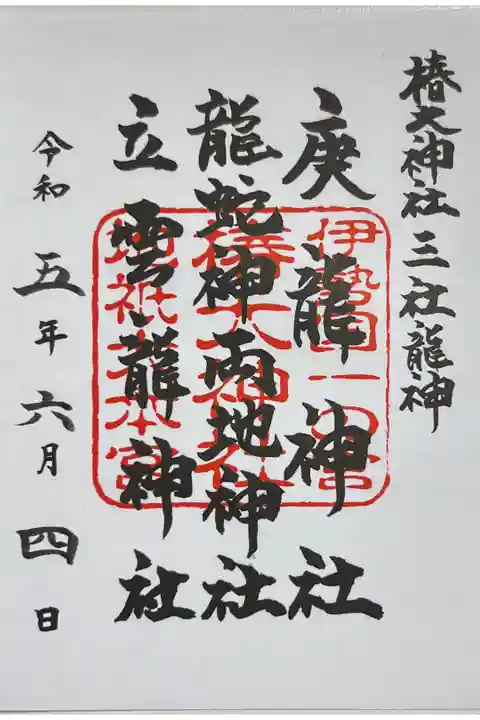 椿大神社三社龍神
庚龍神社
龍蛇神両地神社
立雲龍神社
令和五年六月四日
伊勢国一の宮
椿大神社
地祇本宮